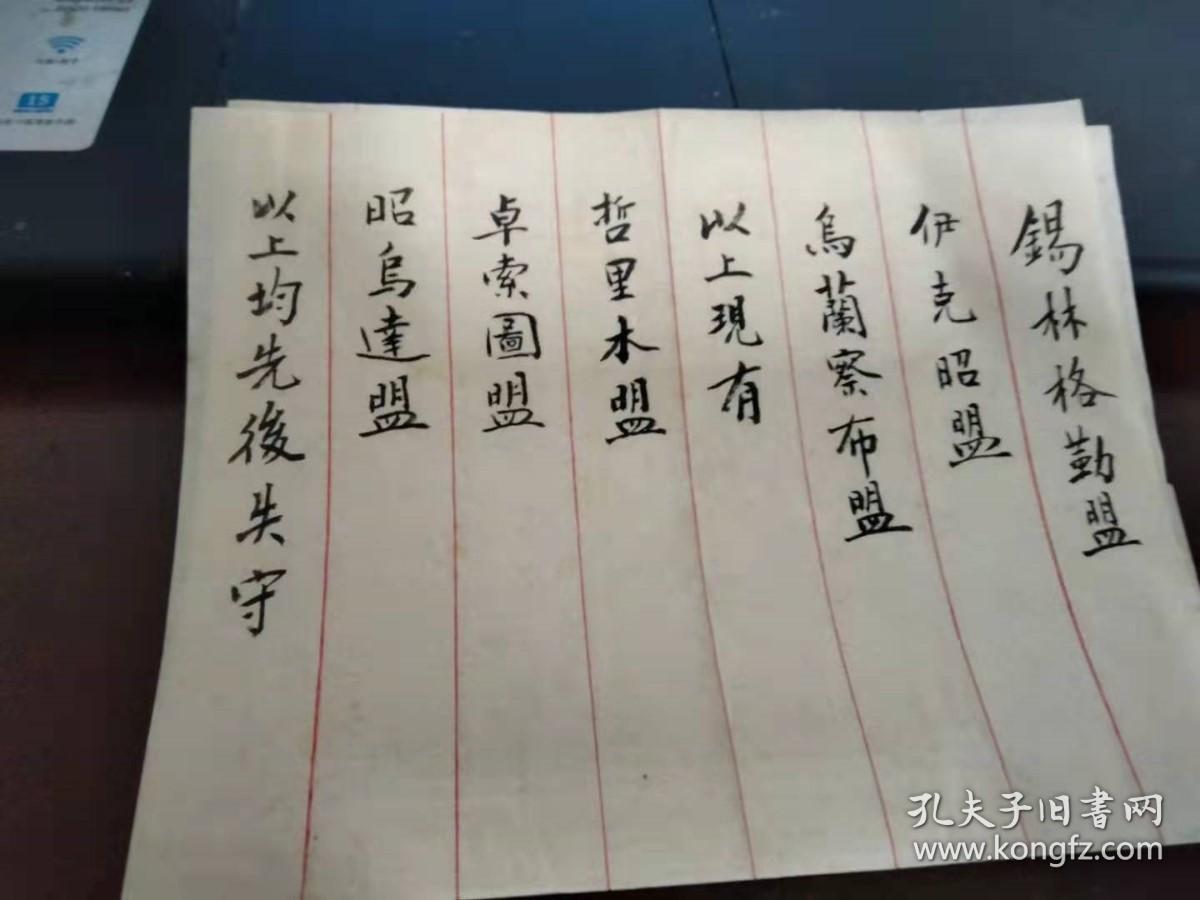 錫林格勒盟
伊克昭盟
烏蘭察布盟
以上現有
哲里木盟
卓索圖盟
昭烏達盟
以上均先後失守
15
孔夫子旧书网
www.kongfz.com